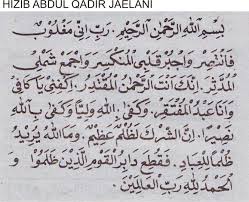 HIZIB ABDUL QADIR JAELANI
بِسْمِ اللهِ الرَّحْمٰنِ الرَّحِيْمِ. رَبِّ اِنِّيْ مَغْلُوْبٌ
فَانْتَصِرْ وَاجْبُرْ قَلْبِيَ الْمُنْكَسِرَ وَاجْمَعْ شَمْلِيَ
الْمُدَّثِرَ. اِنَّكَ اَنْتَ الرَّحْمٰنُ الْمُقْتَدِرُ. اِكْفِنِيْ يَا كَافِيْ
وَاَنَا الْعَبْدُ الْمُفْتَقِرُ. وَكَفٰى بِاللهِ وَلِيًّا وَكَفٰى بِاللهِ
نَصِيْرًا. اِنَّ الشِّرْكَ لَظُلْمٌ عَظِيْمٌ. وَمَا اللهُ يُرِيْدُ
ظُلْمًا لِلْعِبَادِ. فَقُطِعَ دَابِرُ الْقَوْمِ الَّذِيْنَ ظَلَمُوْا وَ
الْحَمْدُ لِلّٰهِ رَبِّ الْعَالَمِيْنَ.